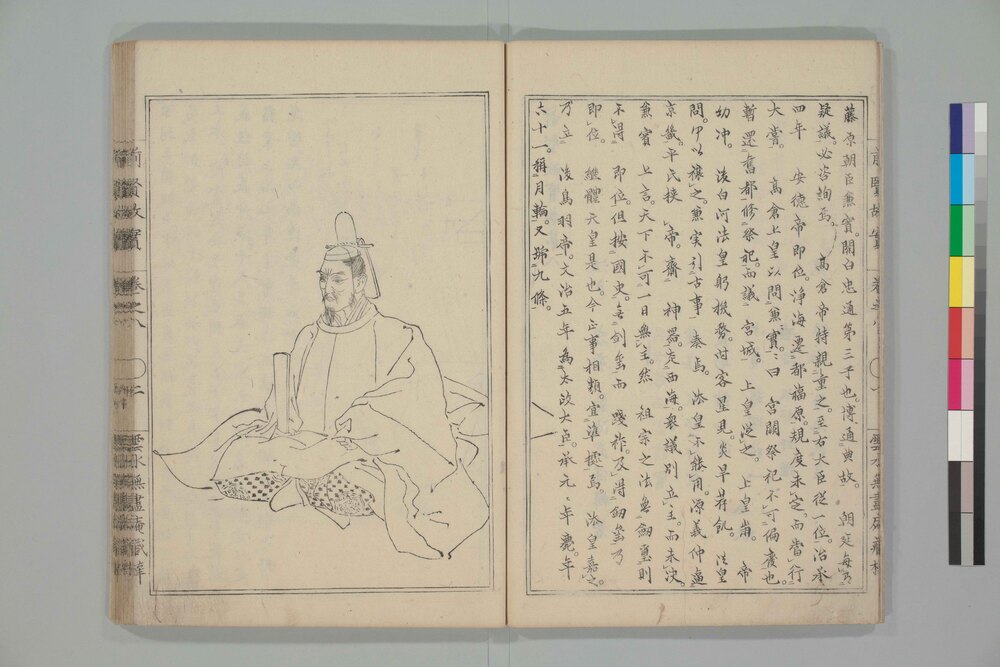 藤原朝臣兼實。關白忠通第三子也。博通典故。 朝廷每有
疑議。必咨詢焉。 高倉帝特親重之。至右大臣從一位。治承
四年 安德帝即位。淨海遷都福原。規度未定。而當行
大嘗。 高倉上皇以問兼實。〻曰 宮闕祭祀不可偏廢也。
暫還舊都修祭祀。而議 宮城。 上皇從之。 上皇崩。 帝
幼冲。 後白河法皇躬機務。時客星見。炎旱荐飢。 法皇
問。何以禳之。兼実引古事 奏焉。 法皇不能用。源義仲逼
京畿。平氏挾 帝。齎 神器走西海。衆議別立主。而未決。
兼實 上言。天下不可一日無主。然 祖宗之法無劔璽則
不得 即位。但按國史。無劍璽而 踐祚。及得劔璽乃
即位。 繼體天皇是也。今正事相類。宜準據焉。 法皇嘉之。
乃立 後鳥羽帝。文治五年為太政大臣。承元〻年薨。年
六十一。稱月輪。又號九條。
前賢故實 卷之八